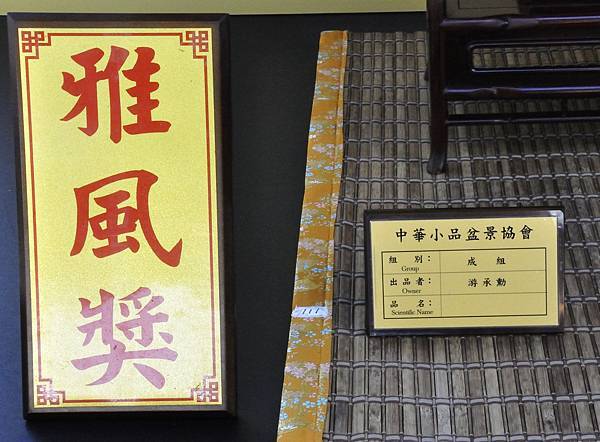 雅風獎
中華小品盆景協會
組別： 成組
Group
出品者： 游承勳
Owner
品名：
Scientific Name
111